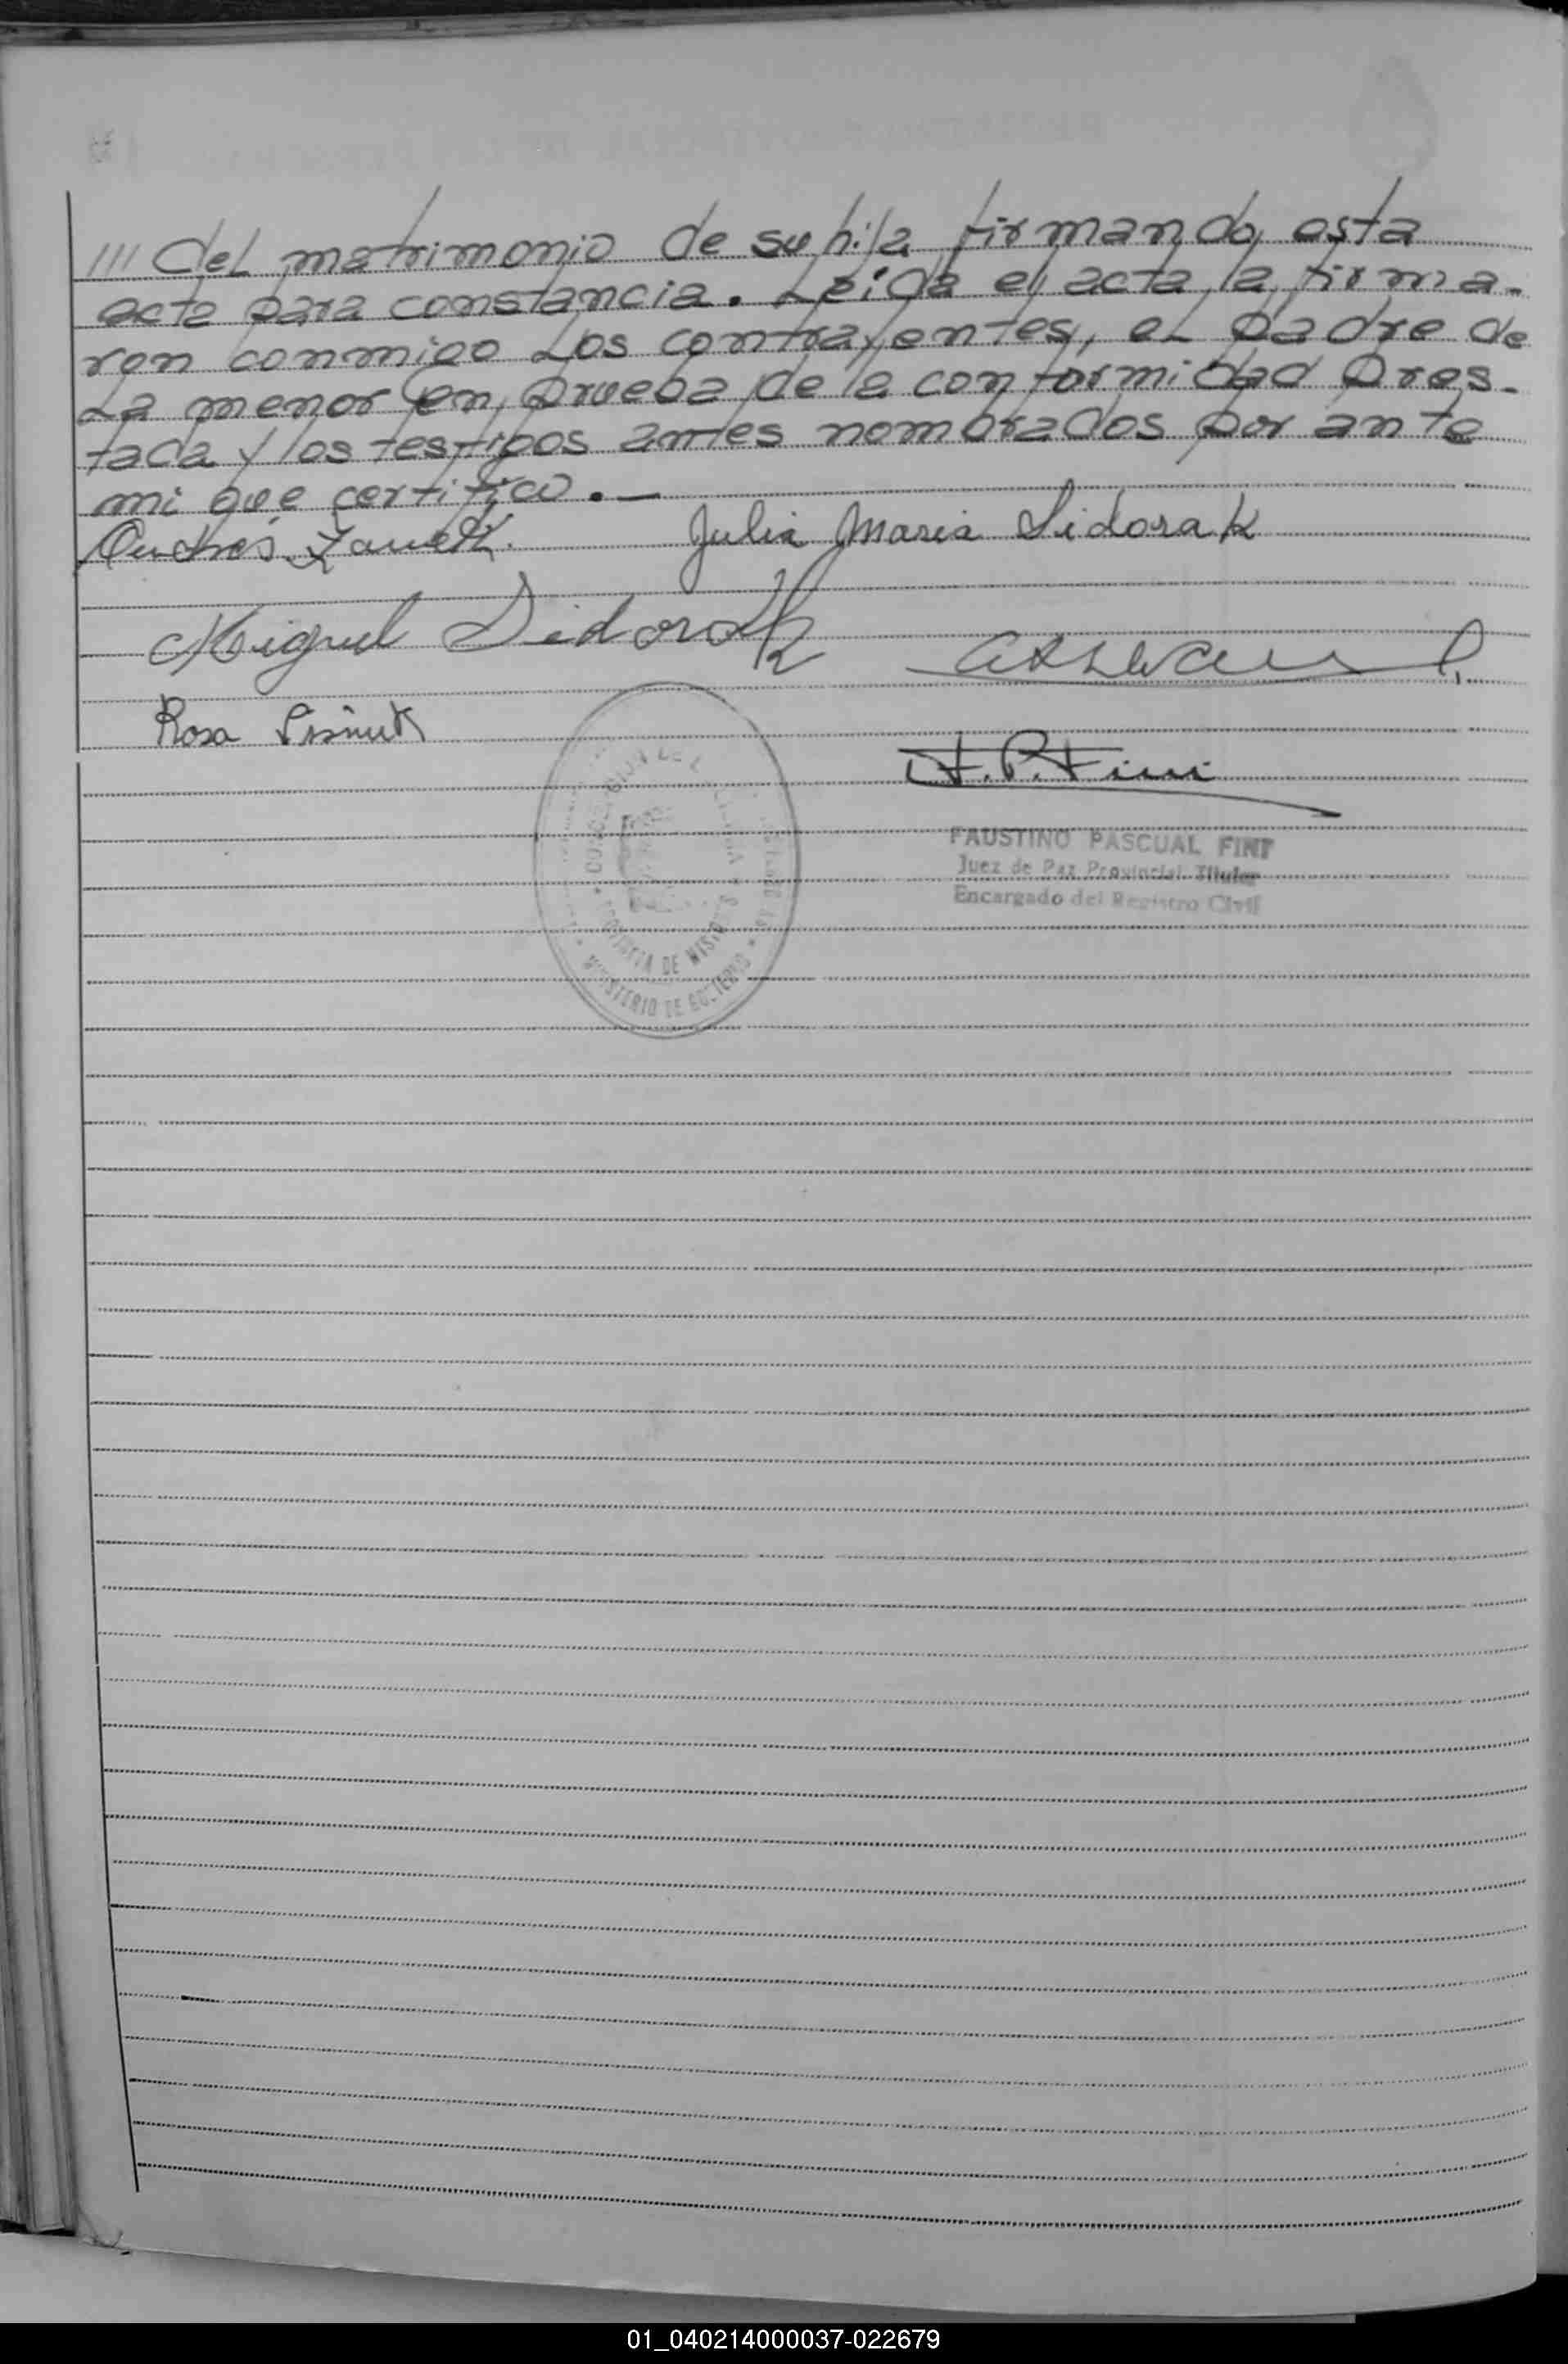 /// del matrimonio de su hija firmando esta
acta para constancia. Leída el acta la firma-
ron conmigo los contrayentes, el padre de
la menor en prueba de la conformidad pres-
tada y los testigos antes nombrados por ante
mi que certifico.—
Andrés
Julia Maria Sidorak
Miguel Sidorak
Rosa
F. P. Fini
FAUSTINO PASCUAL FINI
Juez de Paz Provincial Titular
Encargado del Registro Civil
PROVINCIA DE MISIONES
MINISTERIO DE GOBIERNO
01_040214000037-022679